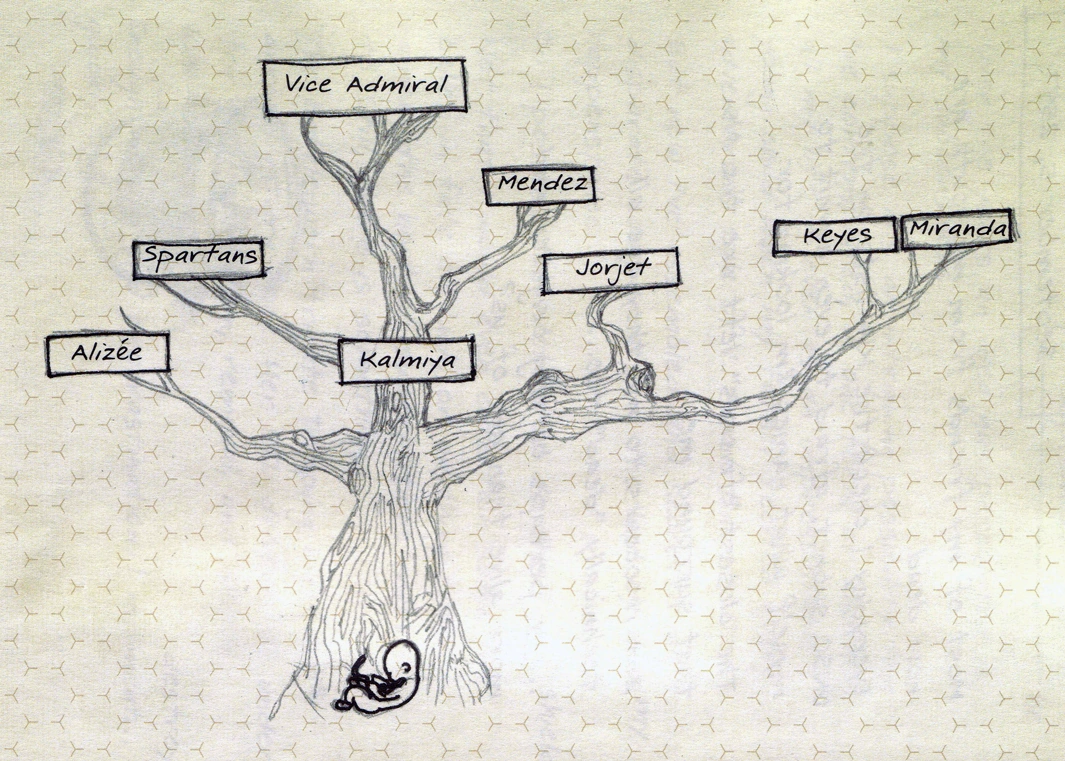 Vice Admiral
Mendez
Spartans
Jorjet
Keyes
Miranda
Alizée
Kalmiya